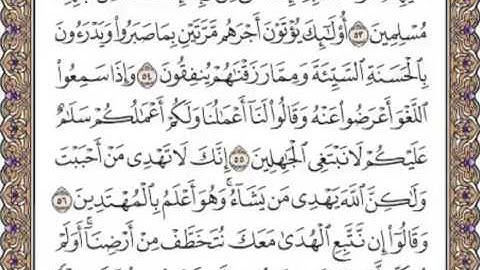 مُسْلِمِينَ ۝٥٣ أُوْلَٰٓئِكَ يُؤْتَوْنَ أَجْرَهُم مَّرَّتَيْنِ بِمَا صَبَرُواْ وَيَدْرَءُونَ
بِٱلْحَسَنَةِ ٱلسَّيِّئَةَ وَمِمَّا رَزَقْنَٰهُمْ يُنفِقُونَ ۝٥٤ وَإِذَا سَمِعُواْ
ٱللَّغْوَ أَعْرَضُواْ عَنْهُ وَقَالُواْ لَنَآ أَعْمَٰلُنَا وَلَكُمْ أَعْمَٰلُكُمْ سَلَٰمٌ
عَلَيْكُمْ لَا نَبْتَغِي ٱلْجَٰهِلِينَ ۝٥٥ إِنَّكَ لَا تَهْدِي مَنْ أَحْبَبْتَ
وَلَٰكِنَّ ٱللَّهَ يَهْدِي مَن يَشَآءُۚ وَهُوَ أَعْلَمُ بِٱلْمُهْتَدِينَ ۝٥٦
وَقَالُوٓاْ إِن نَّتَّبِعِ ٱلْهُدَىٰ مَعَكَ نُتَخَطَّفْ مِنْ أَرْضِنَآۚ أَوَلَمْ